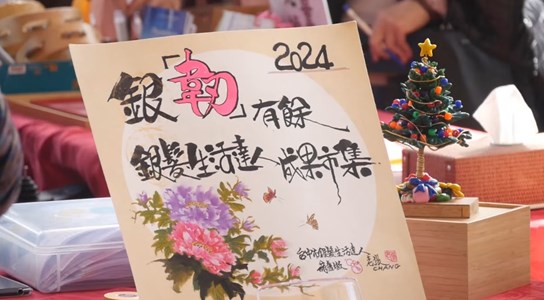 2024
銀「韌」有餘
銀髮生活達人成果市集
台中市銀髮生活達人